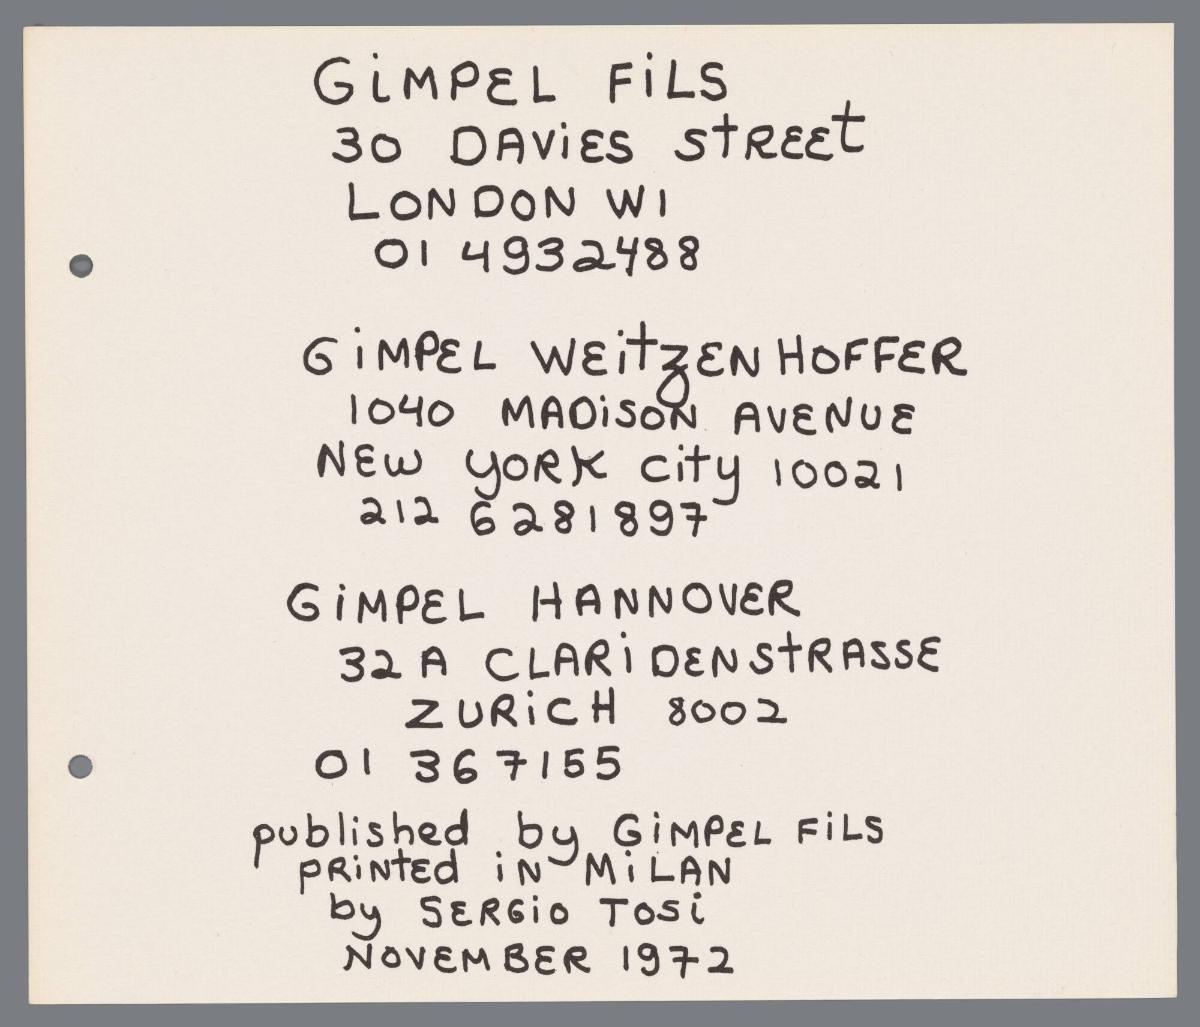 GiMPEL FiLS
30 DAViES StREEt
LONDON W1
01 4932488
GiMPEL WEitzENHOFFER
1040 MADiSON AVENUE
NEW YORK City 10021
212 6281897
GiMPEL HANNOVER
32A CLARiDENStRASSE
ZURiCH 8002
01 367155
published by GiMPEL FiLS
PRiNtEd iN MiLAN
by SERGiO TOSi
NOVEMBER 1972